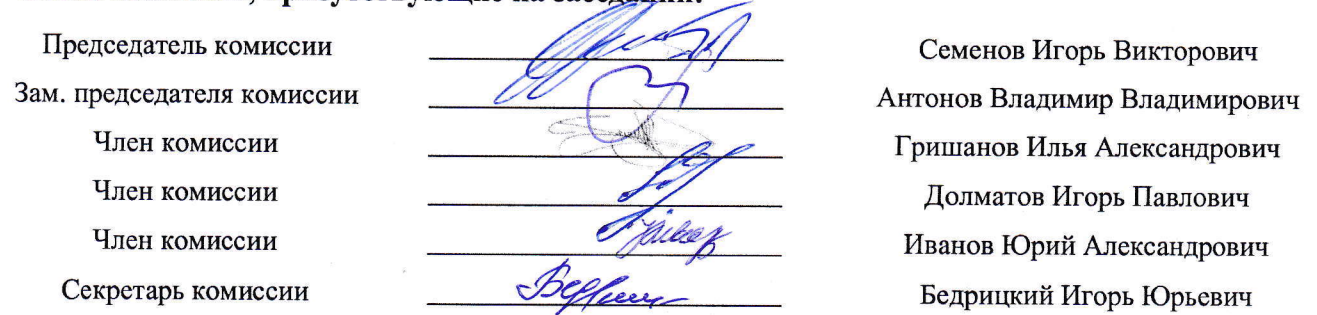 присутствующие на заседании:
Председатель комиссии Семенов Игорь Викторович
Зам. председателя комиссии Антонов Владимир Владимирович
Член комиссии Гришанов Илья Александрович
Член комиссии Долматов Игорь Павлович
Член комиссии Иванов Юрий Александрович
Секретарь комиссии Бедрицкий Игорь Юрьевич